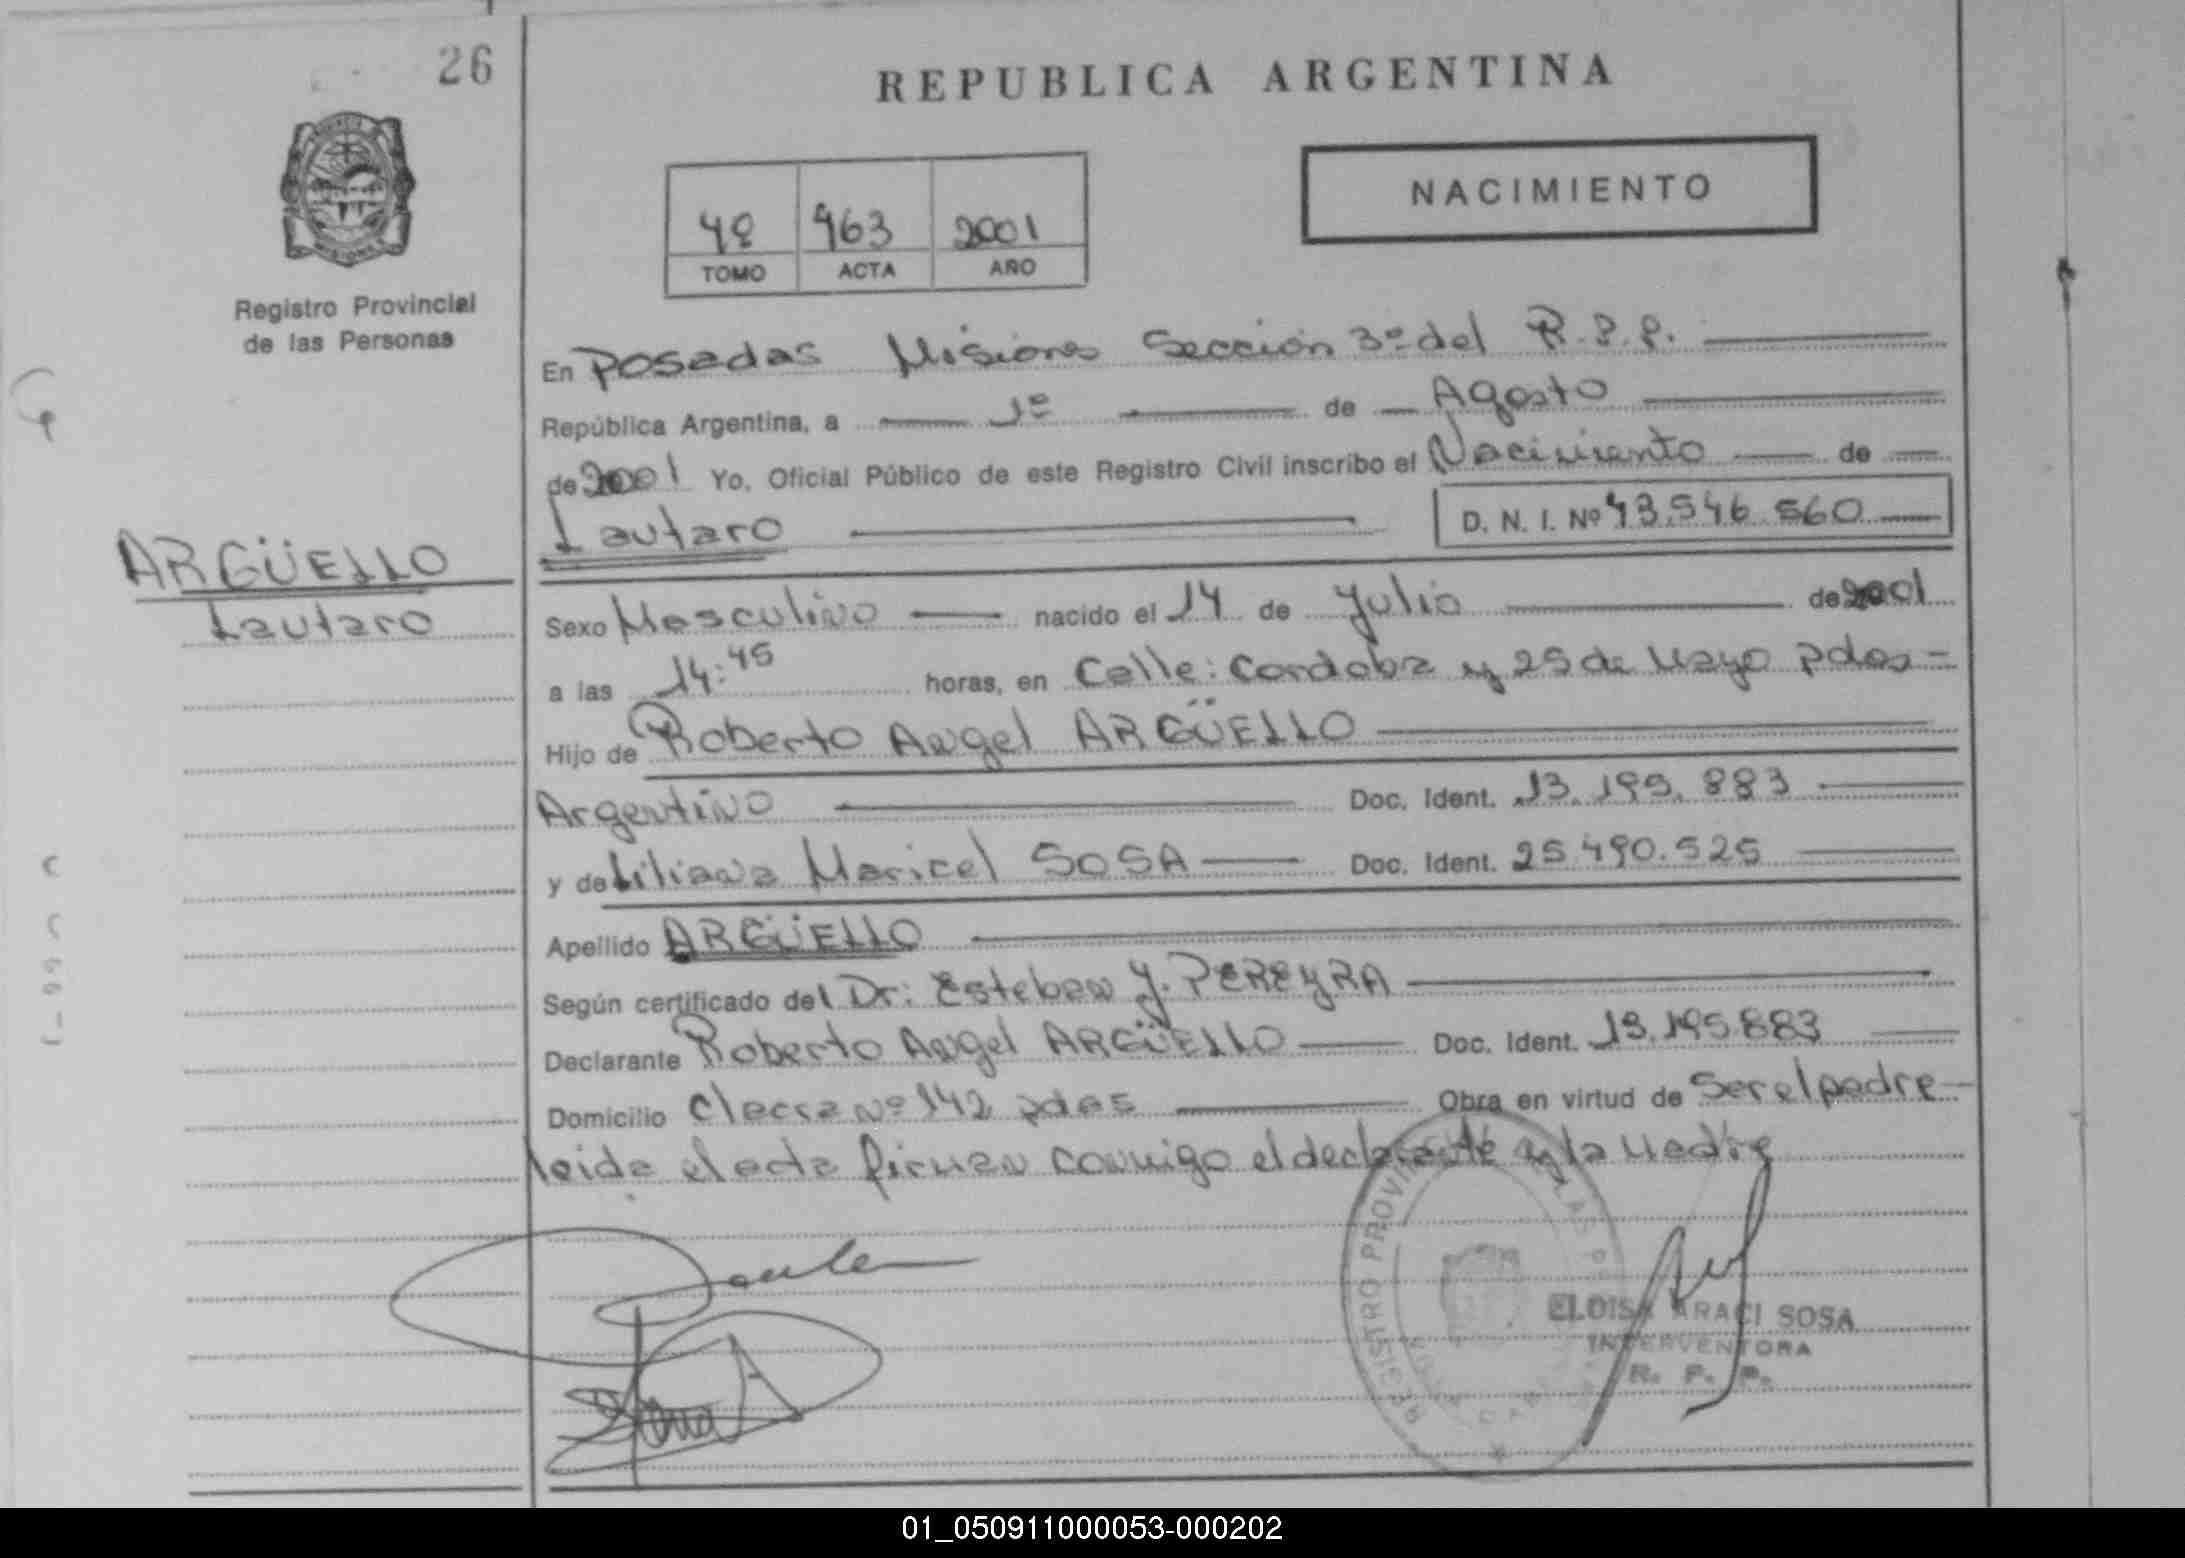 26
REPUBLICA ARGENTINA
NACIMIENTO
4º 963 2001
TOMO ACTA AÑO
Registro Provincial
de las Personas
En Posadas Misiones Sección 3º del R.P.P.
República Argentina, a 1º de Agosto
de 2001 Yo, Oficial Público de este Registro Civil inscribo el Nacimiento de
Lautaro
D. N. I. Nº 43.546.560
ARGÜELLO
Lautaro
Sexo Masculino nacido el 14 de Julio de 2001
a las 14:45 horas, en Calle: Cordoba y 25 de Mayo Pdas-
Hijo de Roberto Angel ARGÜELLO
Argentino Doc. Ident. 13.195.883
y de Liliana Maricel SOSA Doc. Ident. 25.490.525
Apellido ARGÜELLO
Según certificado del Dr: Esteban J. PEREYRA
Declarante Roberto Angel ARGÜELLO Doc. Ident. 13.195.883
Domicilio Chacra Nº 142 Pdas Obra en virtud de Ser el padre
leida el acta firman conmigo el declarante y la Madre
REGISTRO PROVIN
ELOISA ARACI SOSA
INTERVENTORA
R. P. P.
01_050911000053-000202